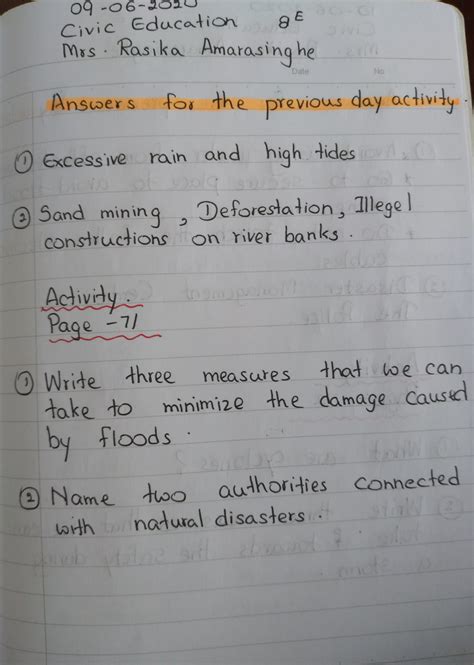 09-06-2020
Civic Education 8E
Mrs. Rasika Amarasinghe
Date No
Answers for the previous day activity.
① Excessive rain and high tides
② Sand mining, Deforestation, Illegel
constructions on river banks.
Activity.
Page -71
① Write three measures that we can
take to minimize the damage caused
by floods.
② Name two authorities connected
with natural disasters.